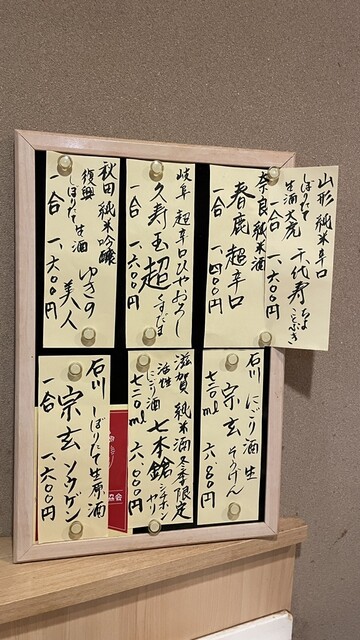 山形 純米辛口
しぼりたて
生酒 大虎 千代寿 ちよことぶき
一合 一、六〇〇円
奈良 純米酒
春鹿 超辛口
一合 一、四〇〇円
岐阜 超辛口ひやおろし
久寿玉 超 くすだま
一合 一、六〇〇円
秋田 純米吟醸
復興
しぼりたて 生酒 ゆきの美人
一合 一、六〇〇円
石川 にごり酒 生
宗玄 そうげん
七二〇ml 六、八〇〇円
滋賀 純米酒 冬季限定
活性
にごり酒 七本鎗 シチホンヤリ
七二〇ml 六、八〇〇円
石川 しぼりたて生原酒
宗玄 ソウゲン
一合 一、六〇〇円
協会